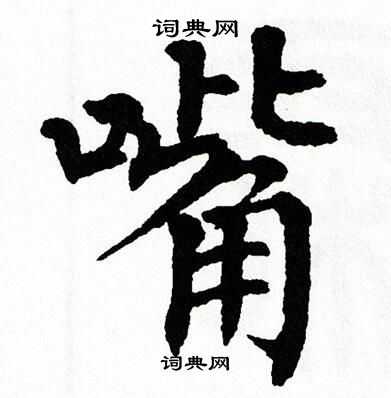 词典网
嘴
词典网